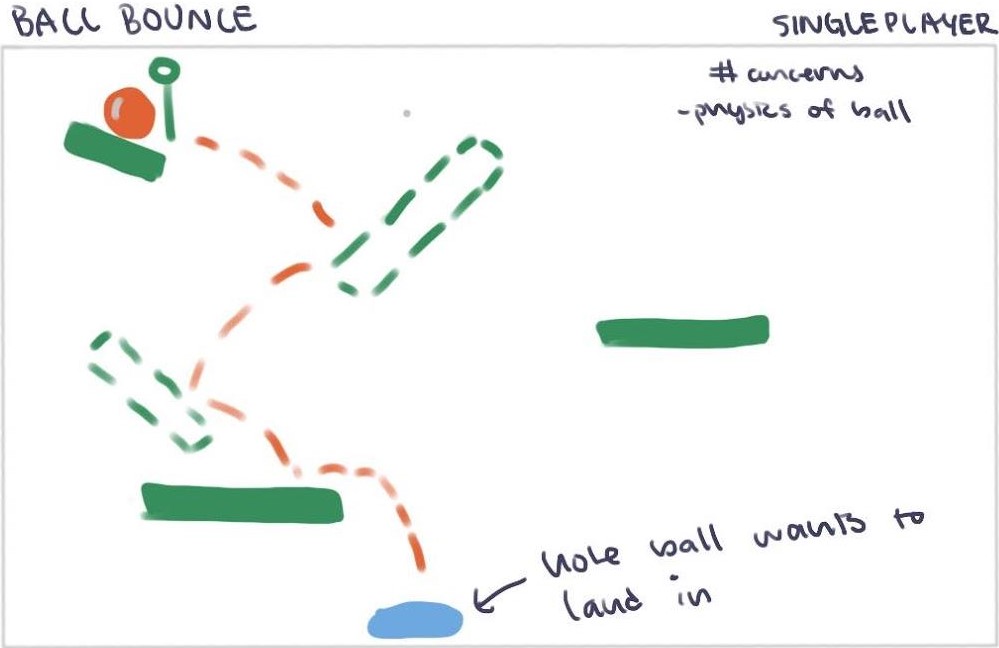 BALL BOUNCE
SINGLEPLAYER
# concerns
-physics of ball
hole ball wants to
land in